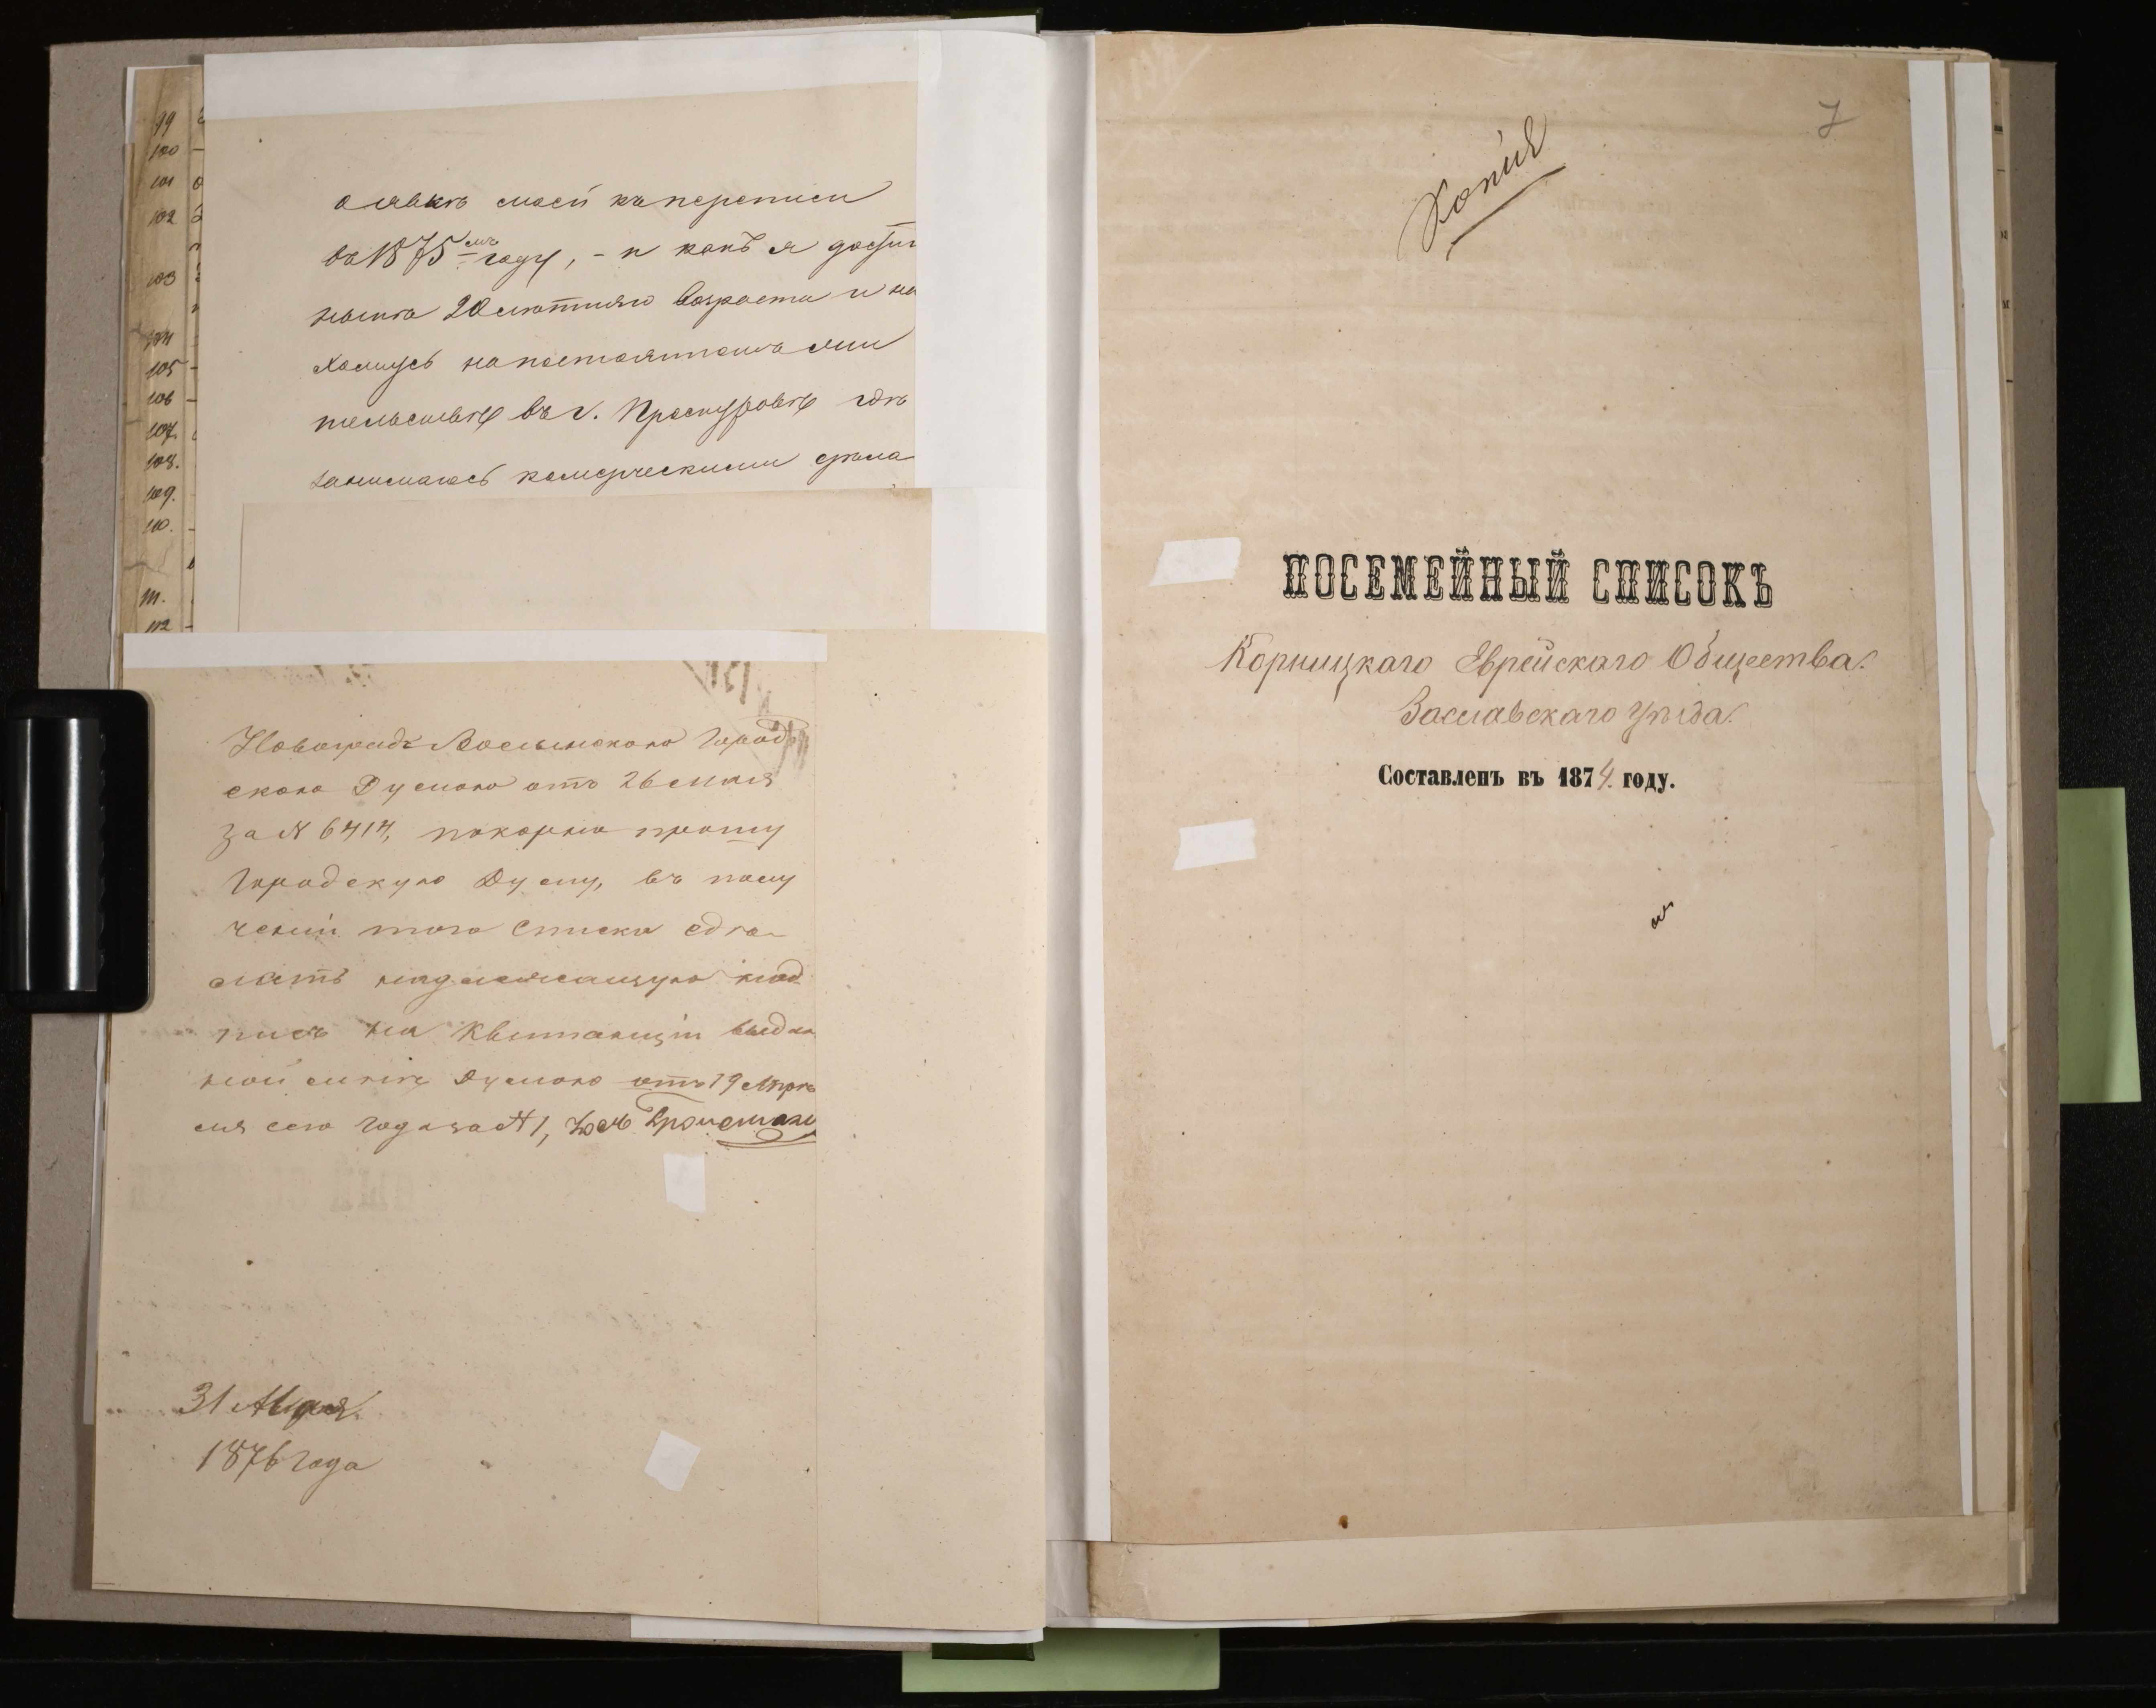 99
100
101
102
103
104
105
106
107.
108.
109.
110.
111.
112
о явкѣ моей къ переписи
въ 1875 мъ году, - и какъ я достиг
нынѣ 20 лѣтняго возраста и на
хожусь на постоянномъ жи
тельствѣ въ г. Проскуровѣ гдѣ
занимаюсь комерческими дѣла
Новоградъ Волынскою Город
скою Думою отъ 26 мая
за N 6414, покорно прошу
Городскую Думу, въ полу
ченіи того списка сдѣ-
лать надлежащую над
пись на Квитанціи выдан
ной мнѣ Думою отъ 19 Апрѣ
ля сего года за N 1,
31 Мая
1876 года
7
Копія
ПОСЕМЕЙНЫЙ СПИСОКЪ
Корницкаго Еврейскаго Общества.
Заславскаго Уѣзда.
Составленъ въ 1874. году.